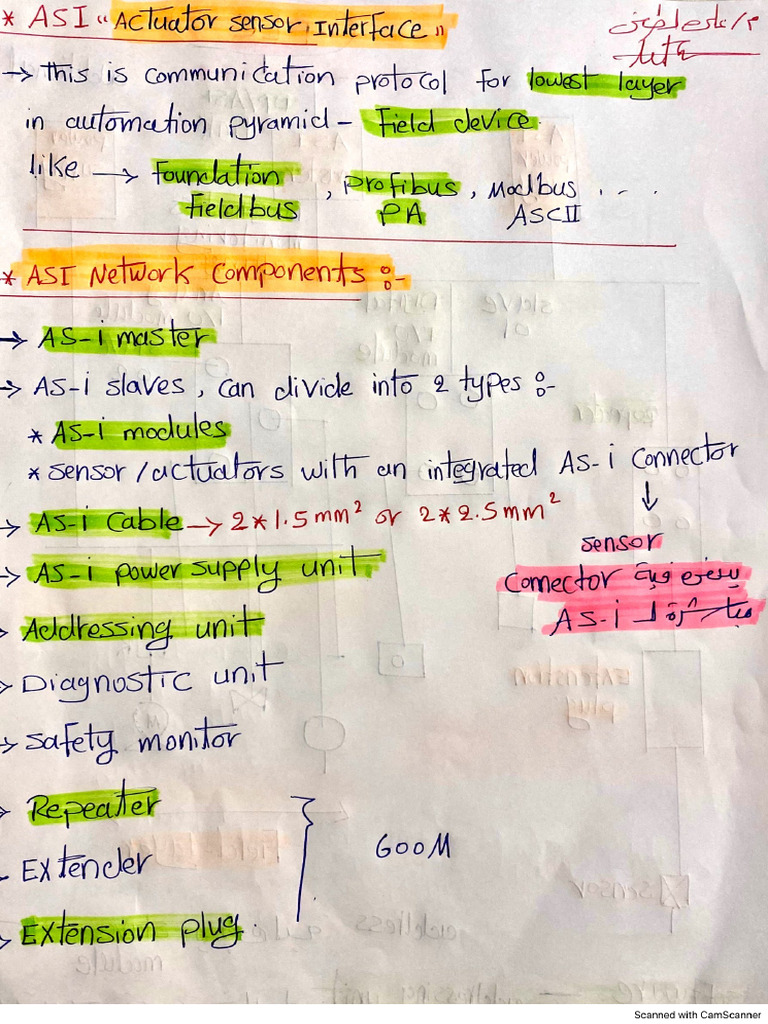 * ASI "Actuator sensor Interface"
→ This is communication protocol for lowest layer
in automation pyramid - Field device
like → Foundation Fieldbus , profibus PA , Modbus ASCII ....
* ASI Network Components :-
→ AS-i master
→ AS-i slaves , can divide into 2 types :-
* AS-i modules
* sensor/actuators with an integrated AS-i Connector
↓
→ AS-i Cable → 2*1.5mm² or 2*2.5mm²
sensor
→ AS-i power supply unit
Connector فية
مباشرة لـ AS-i
→ Addressing unit
→ Diagnostic unit
→ safety monitor
→ Repeater
600M
→ Extender
→ Extension plug
Scanned with CamScanner